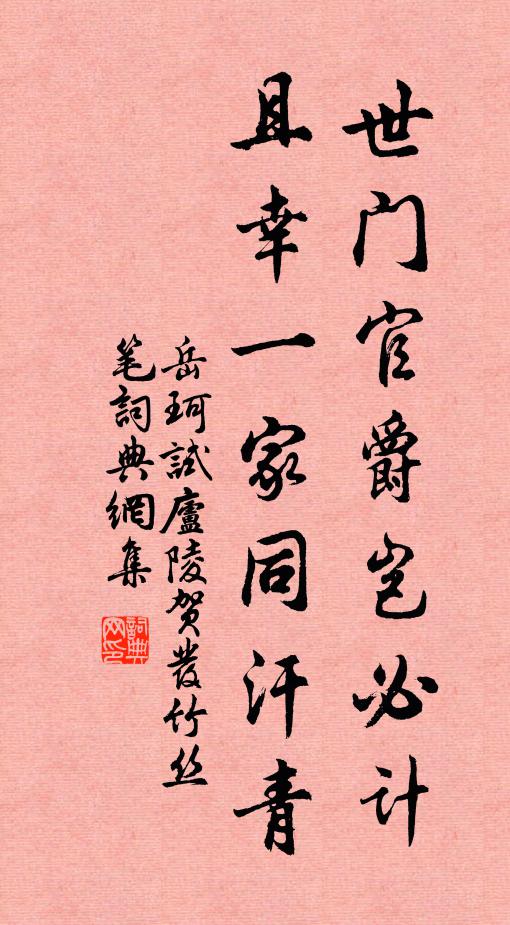 世门官爵岂必计
且幸一家同汗青
岳珂試廬陵贺發竹丝
笔詞典網集
詞典网印